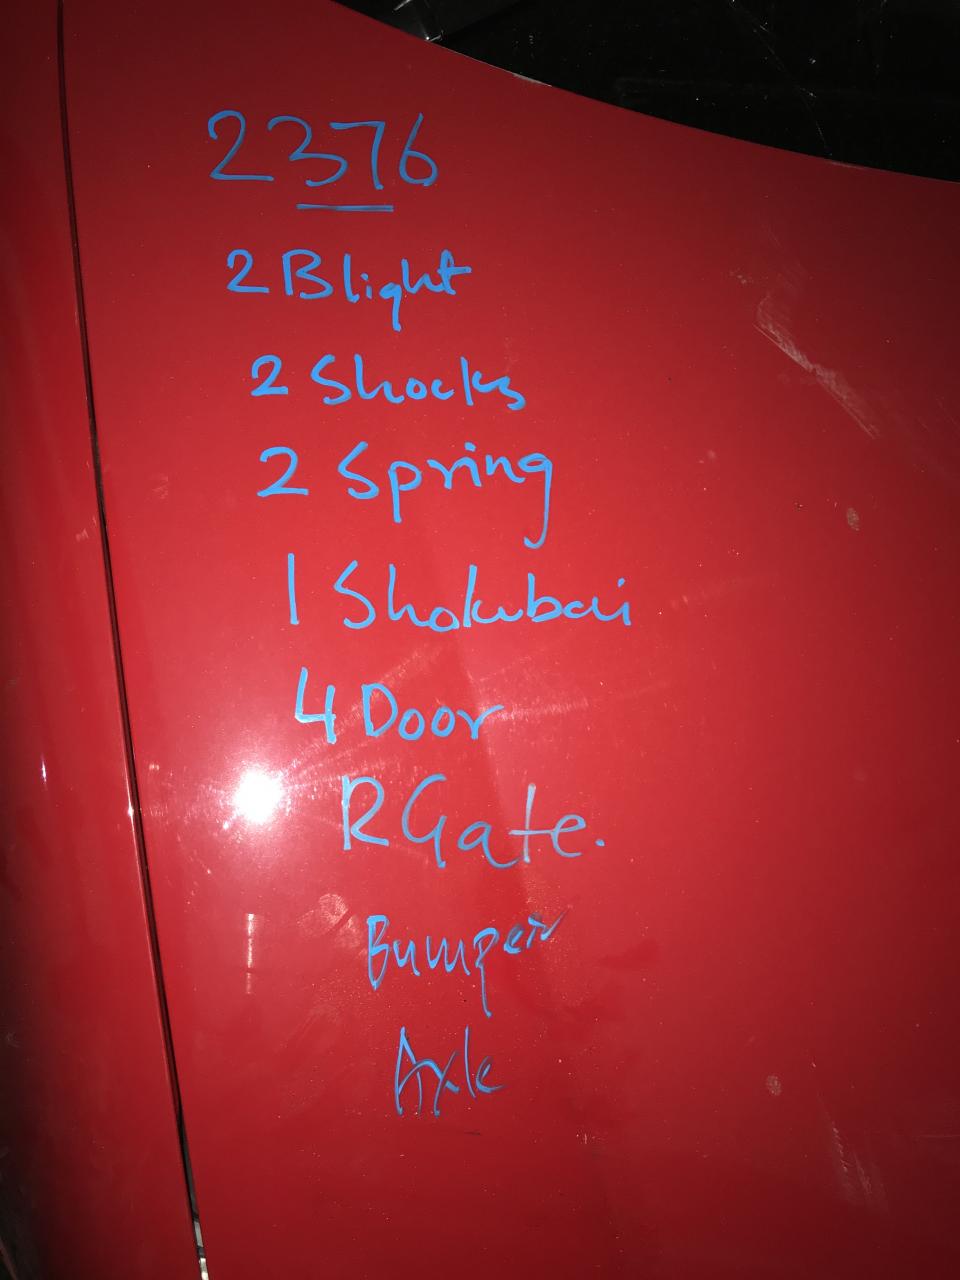 2376
2 Blight
2 Shocks
2 Spring
1
4 Door
R Gate.
Bumper
Axle